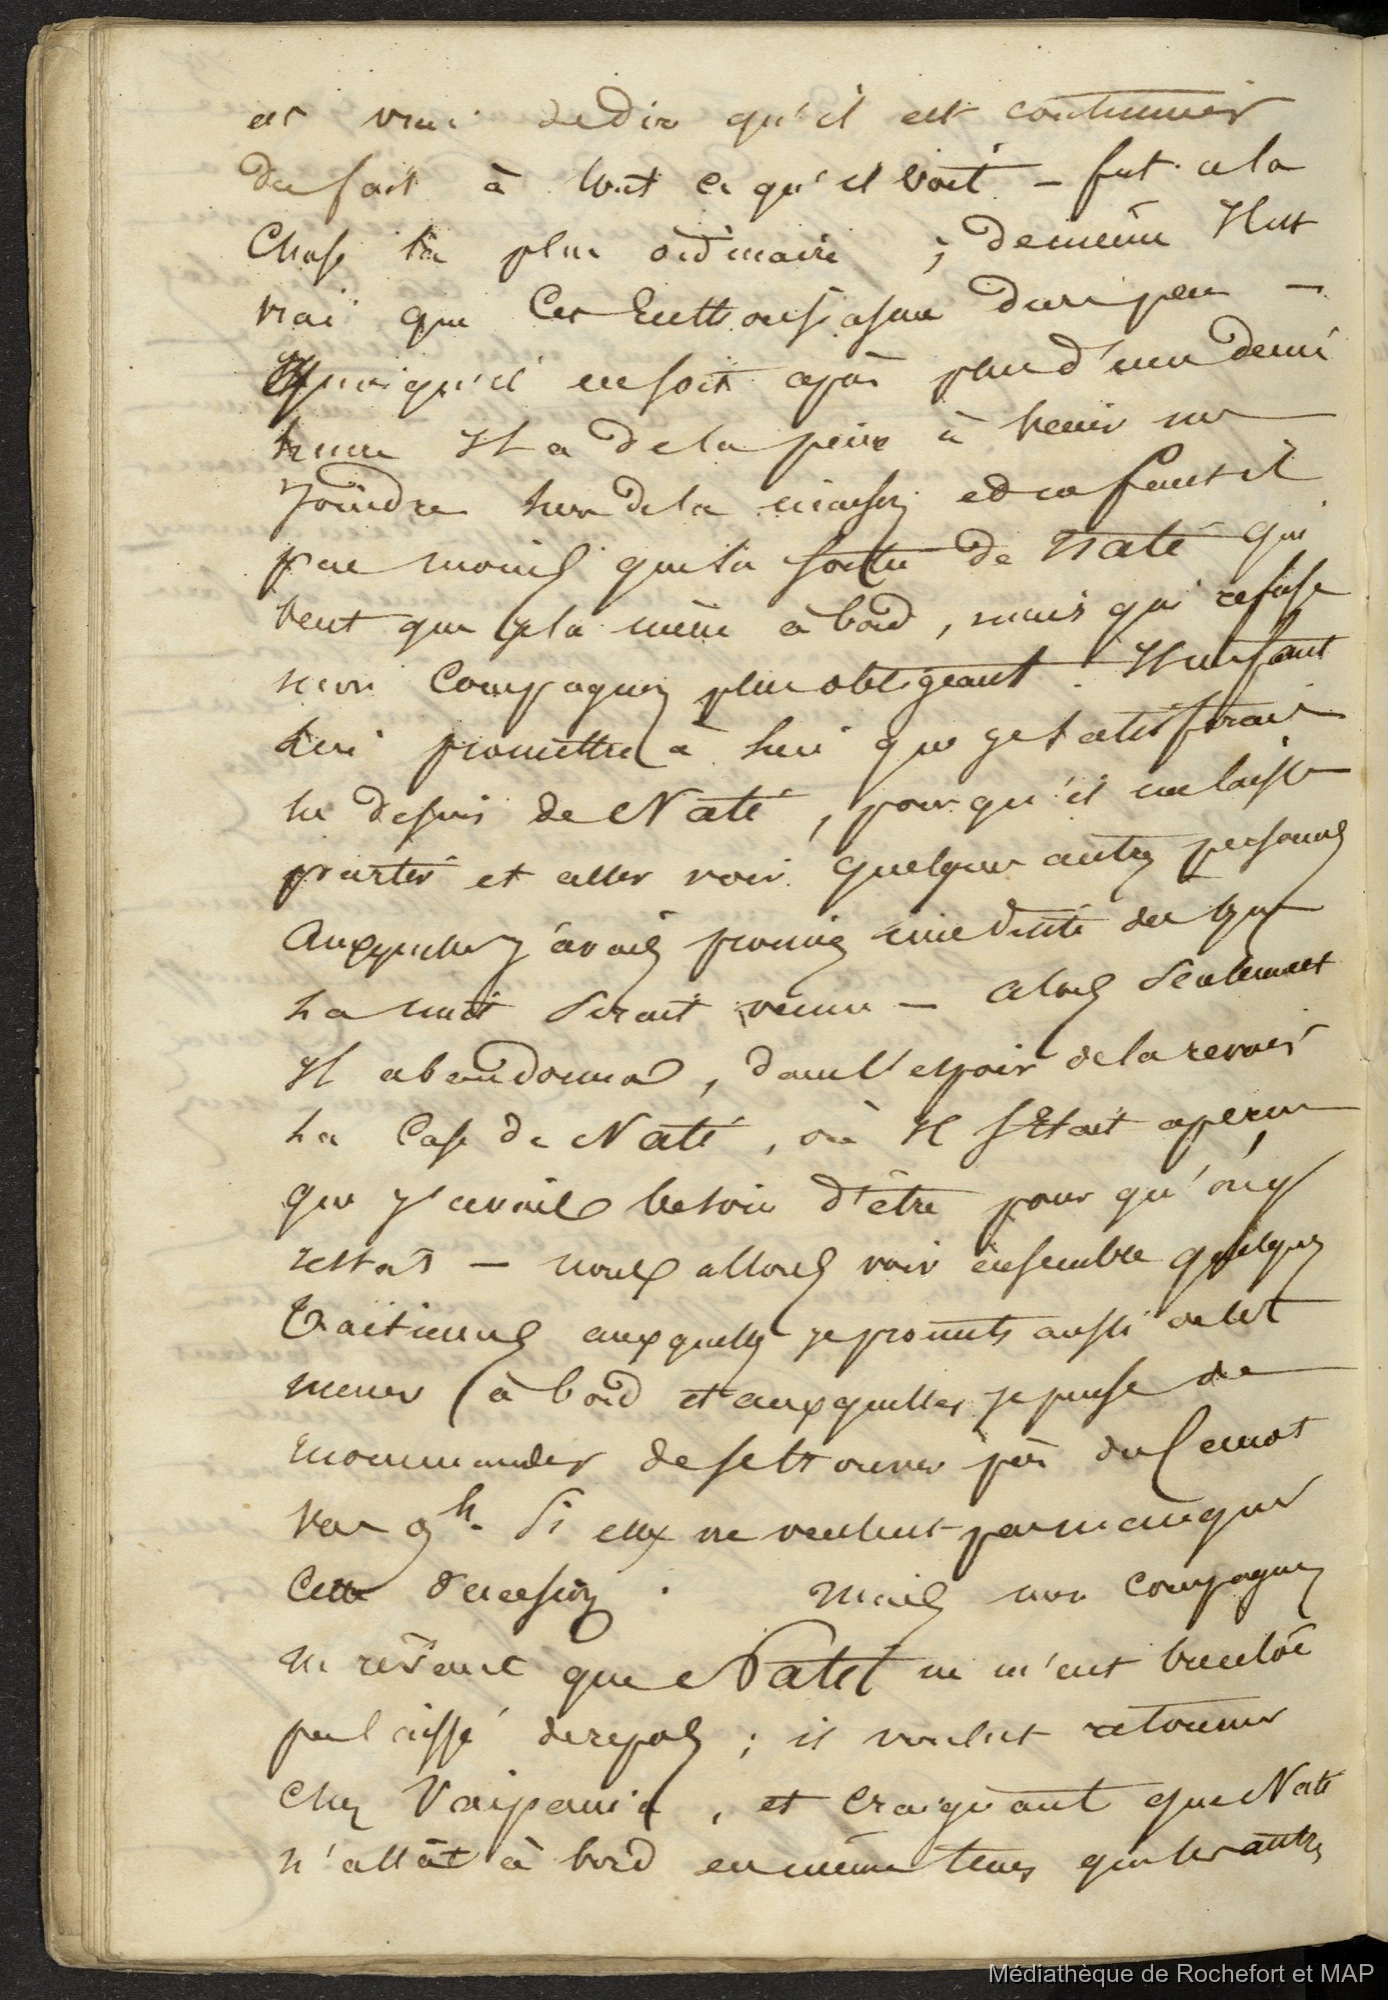 est vrai de dire qu'il est coutumier
du fait à tout ce qu'il voit - fut-ce la
Chose la plus ordinaire ; de même Il est
vrai que Cet Enttousiasme dure peu -
Quoiqu'il en soit après plus d'une demi
heure Il a de la peine à venir me
Joindre hors de la maison et ne faut il
pas moins que la sortie de Naté qui
veut que je la mène à bord, mais qui refuse
mon Compagnon plus obligeant. Il me faut
lui promettre à lui que je satisferais
le desir de Naté, pour qu'il me laisse
partir et aller voir quelques autres personnes
Auxquelles j'avais promis une visite dès que
la nuit Serait venue - alors Seulement
Il abandonna, dans l'espoir de la revoir
la Case de Naté, où Il S'Etait aperçu
que j'avais besoin d'être pour qu'on y
restas - nous allons voir ensemble quelques
Taitiens auxquels je promets aussi de les
mener à bord et auxquelles je pense de
recommander de se trouver près du Canot
vers 9h. Si elles ne veulent pas manquer
Cette occasion. Mais mon Compagnon
ne rêvant que Naté ne m'eut bientôt
pas laissé de repos ; il voulut retourner
Chez Vaipania, et Craignant que Naté
n'allât à bord en même tems que les autres
Médiathèque de Rochefort et MAP